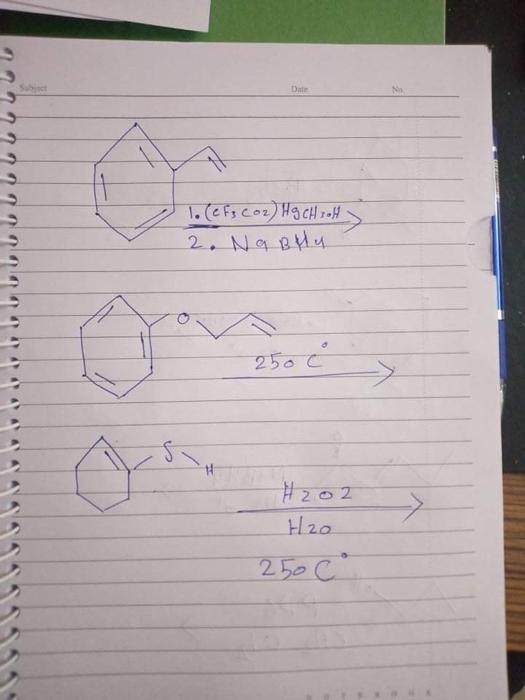 Subject Date No.
1. (CF3CO2)HgCH3OH
2. NaBH4
O
250 C°
S
H
H2O2
H2O
250 C°